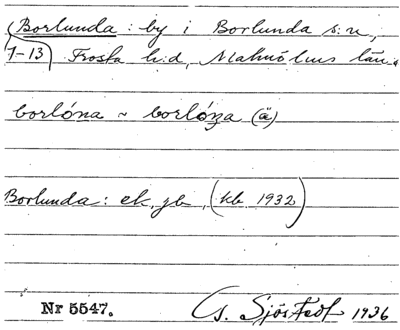 (Borlunda: by i Borlunda s:n,
1–13) Frosta h:d, Malmöhus län.
borlóna ~ borlóna (ä)
Borlunda: ek. jb. (kb 1932)
Nr 5547. G. Sjöstedt 1936